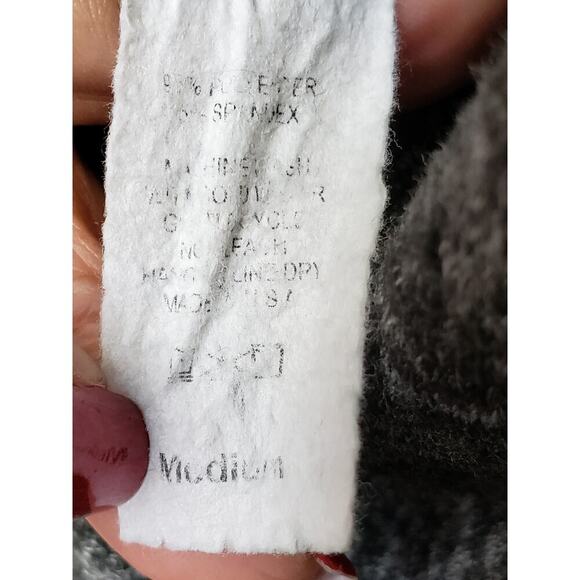 POLYESTER
SPANDEX
MACHINE WASH
COLD WATER
CYCLE
NO BLEACH
HANG LINE DRY
MADE U.S.A
Medium